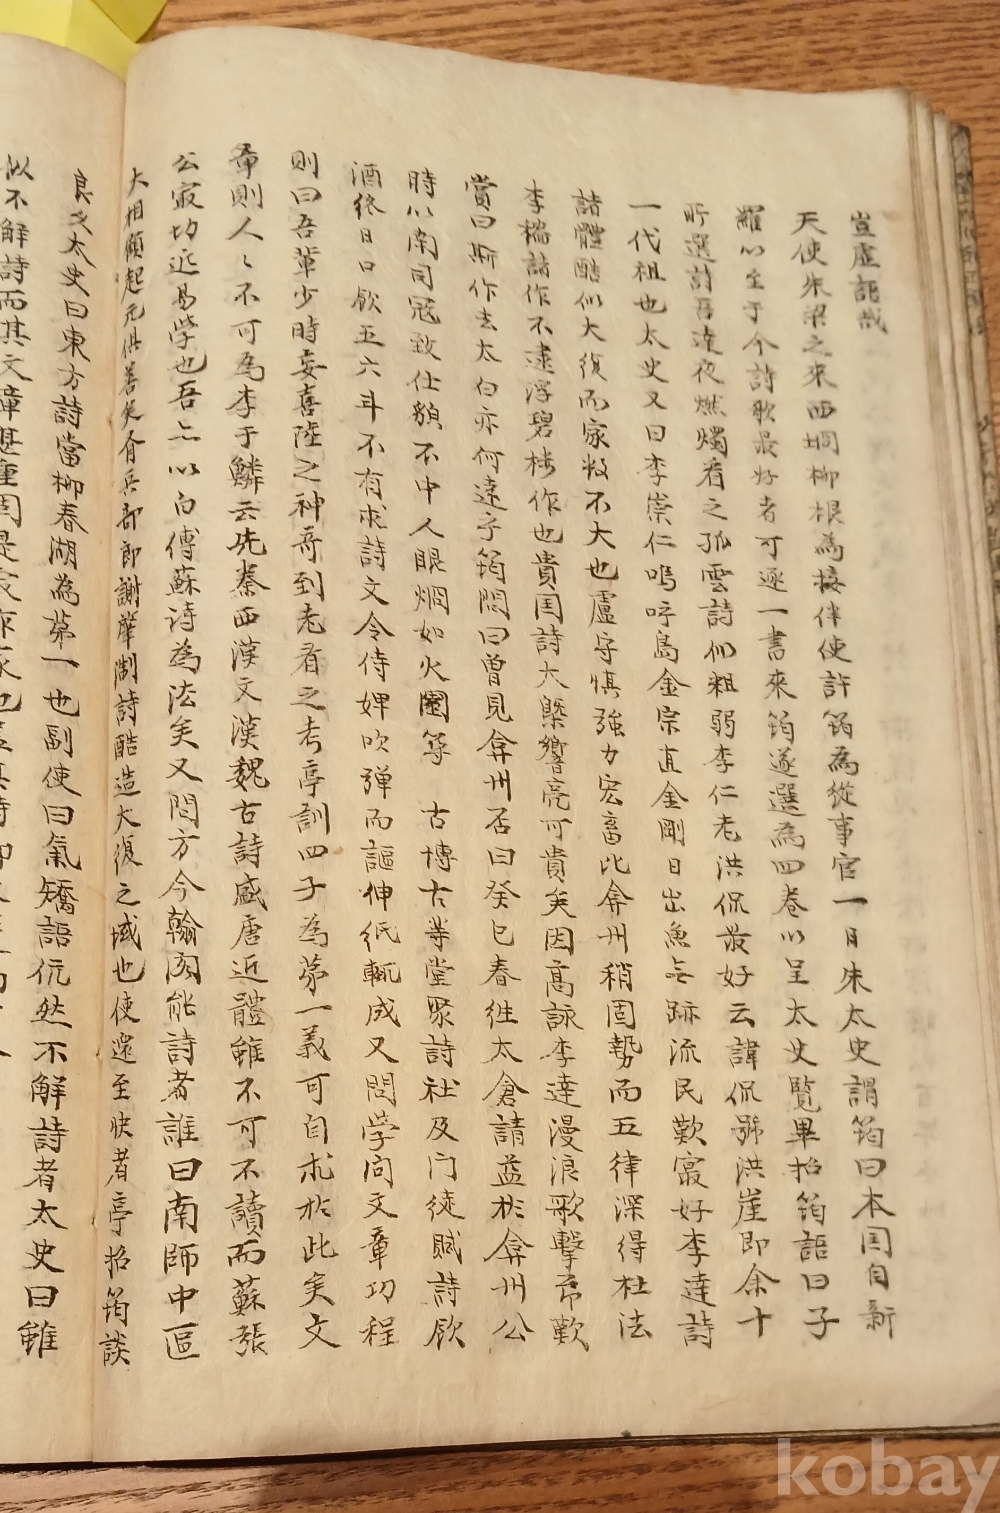 豈虛語哉
天使朱梁之來西坰柳根為接伴使許筠為從事官一日朱太史謂筠曰本国自新
羅以至于今詩歌最好者可逐一書來筠遂選為四卷以呈太史覽畢招筠語曰子
所選詩吾達夜燃燭看之孤雲詩似粗弱李仁老洪侃最好云諱侃號洪崖即余十
一代祖也太史又曰李崇仁嗚呼島金宗直金剛日出魚無跡流民歎寂好李達詩
諸體酷似大復而家数不大也盧守慎強力宏畜比弇州稍固勢而五律深得杜法
李穡諸作不逮浮碧楼作也貴国詩大槩響亮可貴矣因高詠李達漫浪歌擊节歎
賞曰斯作去太白亦何遠乎筠問曰曾見弇州否曰癸巳春徃太倉請益於弇州公
時以南司冠致仕䫉不中人眼烱如火園等 古博古等堂聚詩社及门徒賦詩飲
酒終日日飲五六斗不有求詩文令侍婢吹弾而謳伸紙輒成又問学问文章功程
則曰吾輩少時妄喜陸之神哥到老看之考亭訓四子為苐一義可自求於此矣文
章則人々不可為李于鱗云先秦西漢文漢魏古詩盛唐近體雖不可不讀而蘇張
公寂功近易學也吾亦以白傅蘇诗為法矣又問方今翰阁能詩者誰曰南師中區
大相顧起元俱善矣兵部郎謝肇淛詩酷造大復之域也使還至快者亭招筠談
良久太史曰東方詩當柳春湖為苐一也副使曰氣矯語伉然不解詩者太史曰雖
似不解詩而其文章
kobay